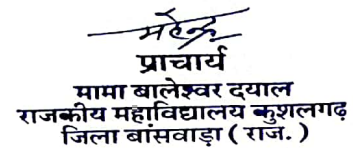 महेन्द्र
प्राचार्य
मामा बालेश्वर दयाल
राजकीय महाविद्यालय कुशलगढ़
जिला बांसवाड़ा ( राज. )